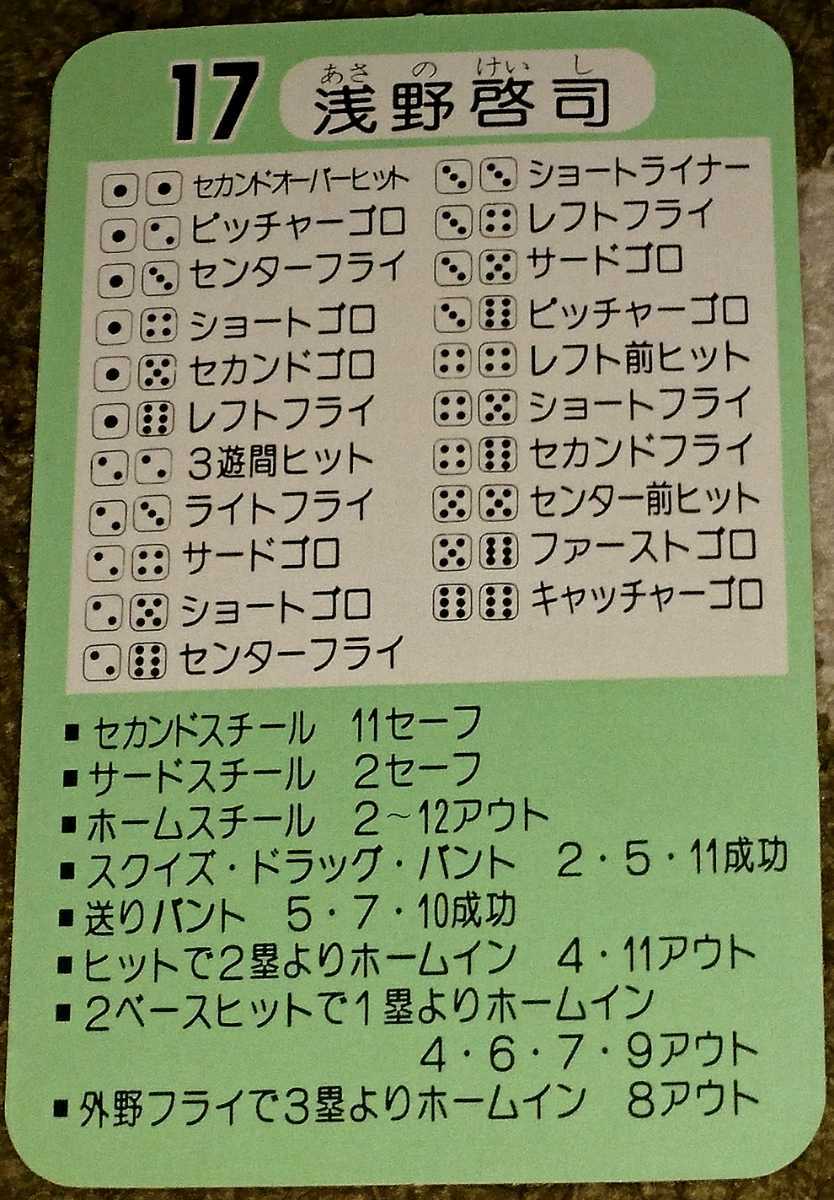 17 浅野啓司
あさ の けい し
セカンドオーバーヒット
ピッチャーゴロ
センターフライ
ショートゴロ
セカンドゴロ
レフトフライ
3遊間ヒット
ライトフライ
サードゴロ
ショートゴロ
センターフライ
ショートライナー
レフトフライ
サードゴロ
ピッチャーゴロ
レフト前ヒット
ショートフライ
セカンドフライ
センター前ヒット
ファーストゴロ
キャッチャーゴロ
■セカンドスチール 11セーフ
■サードスチール 2セーフ
■ホームスチール 2~12アウト
■スクイズ・ドラッグ・バント 2・5・11成功
■送りバント 5・7・10成功
■ヒットで2塁よりホームイン 4・11アウト
■2ベースヒットで1塁よりホームイン
4・6・7・9アウト
■外野フライで3塁よりホームイン 8アウト